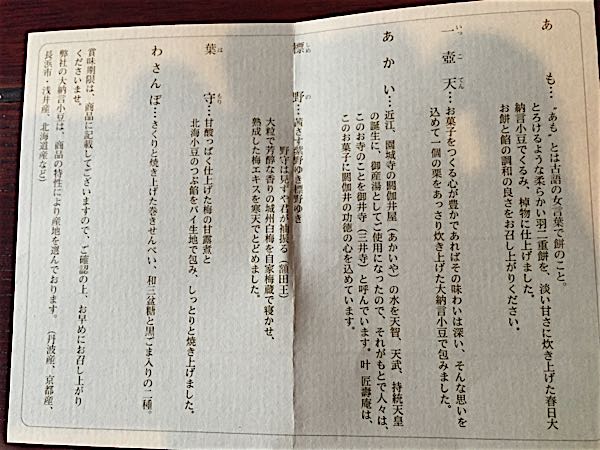 あも…〝あも〟とは古語の女言葉で餅のこと。
とろけるような柔らかい羽二重餅を、淡い甘さに炊き上げた春日大
納言小豆でくるみ、棹物に仕上げました。
お餅と餡の調和の良さをお召し上がりください。
一壺天…お菓子をつくる心が豊かであればその味わいは深い、そんな思いを
いっこてん
込めて一個の栗をあっさり炊き上げた大納言小豆で包みました。
あかい…近江、園城寺の閼伽井屋（あかいや）の水を天智、天武、持統天皇
の誕生に、御産湯としてご使用になったので、それがもとで人々は、
このお寺のことを御井寺（三井寺）と呼んでいます。叶 匠壽庵は、
このお菓子に閼伽井の功徳の心を込めています。
標野…茜さす紫野ゆき標野ゆき
しめの
野守は見ずや君が袖振る（額田王）
大粒で芳醇な香りの城州白梅を自家梅蔵で寝かせ、
熟成した梅エキスを寒天でとどめました。
葉守…甘酸っぱく仕上げた梅の甘露煮と
はもり
北海小豆のつぶ餡をパイ生地で包み、しっとりと焼き上げました。
わさんぼ…さくりと焼き上げた巻きせんべい、和三盆糖と黒ごま入りの二種。
賞味期限は、商品に記載してございますので、ご確認の上、お早めにお召し上がり
くださいませ。
弊社の大納言小豆は、商品の特性により産地を選んでおります。（丹波産、京都産、
長浜市・浅井産、北海道産など）